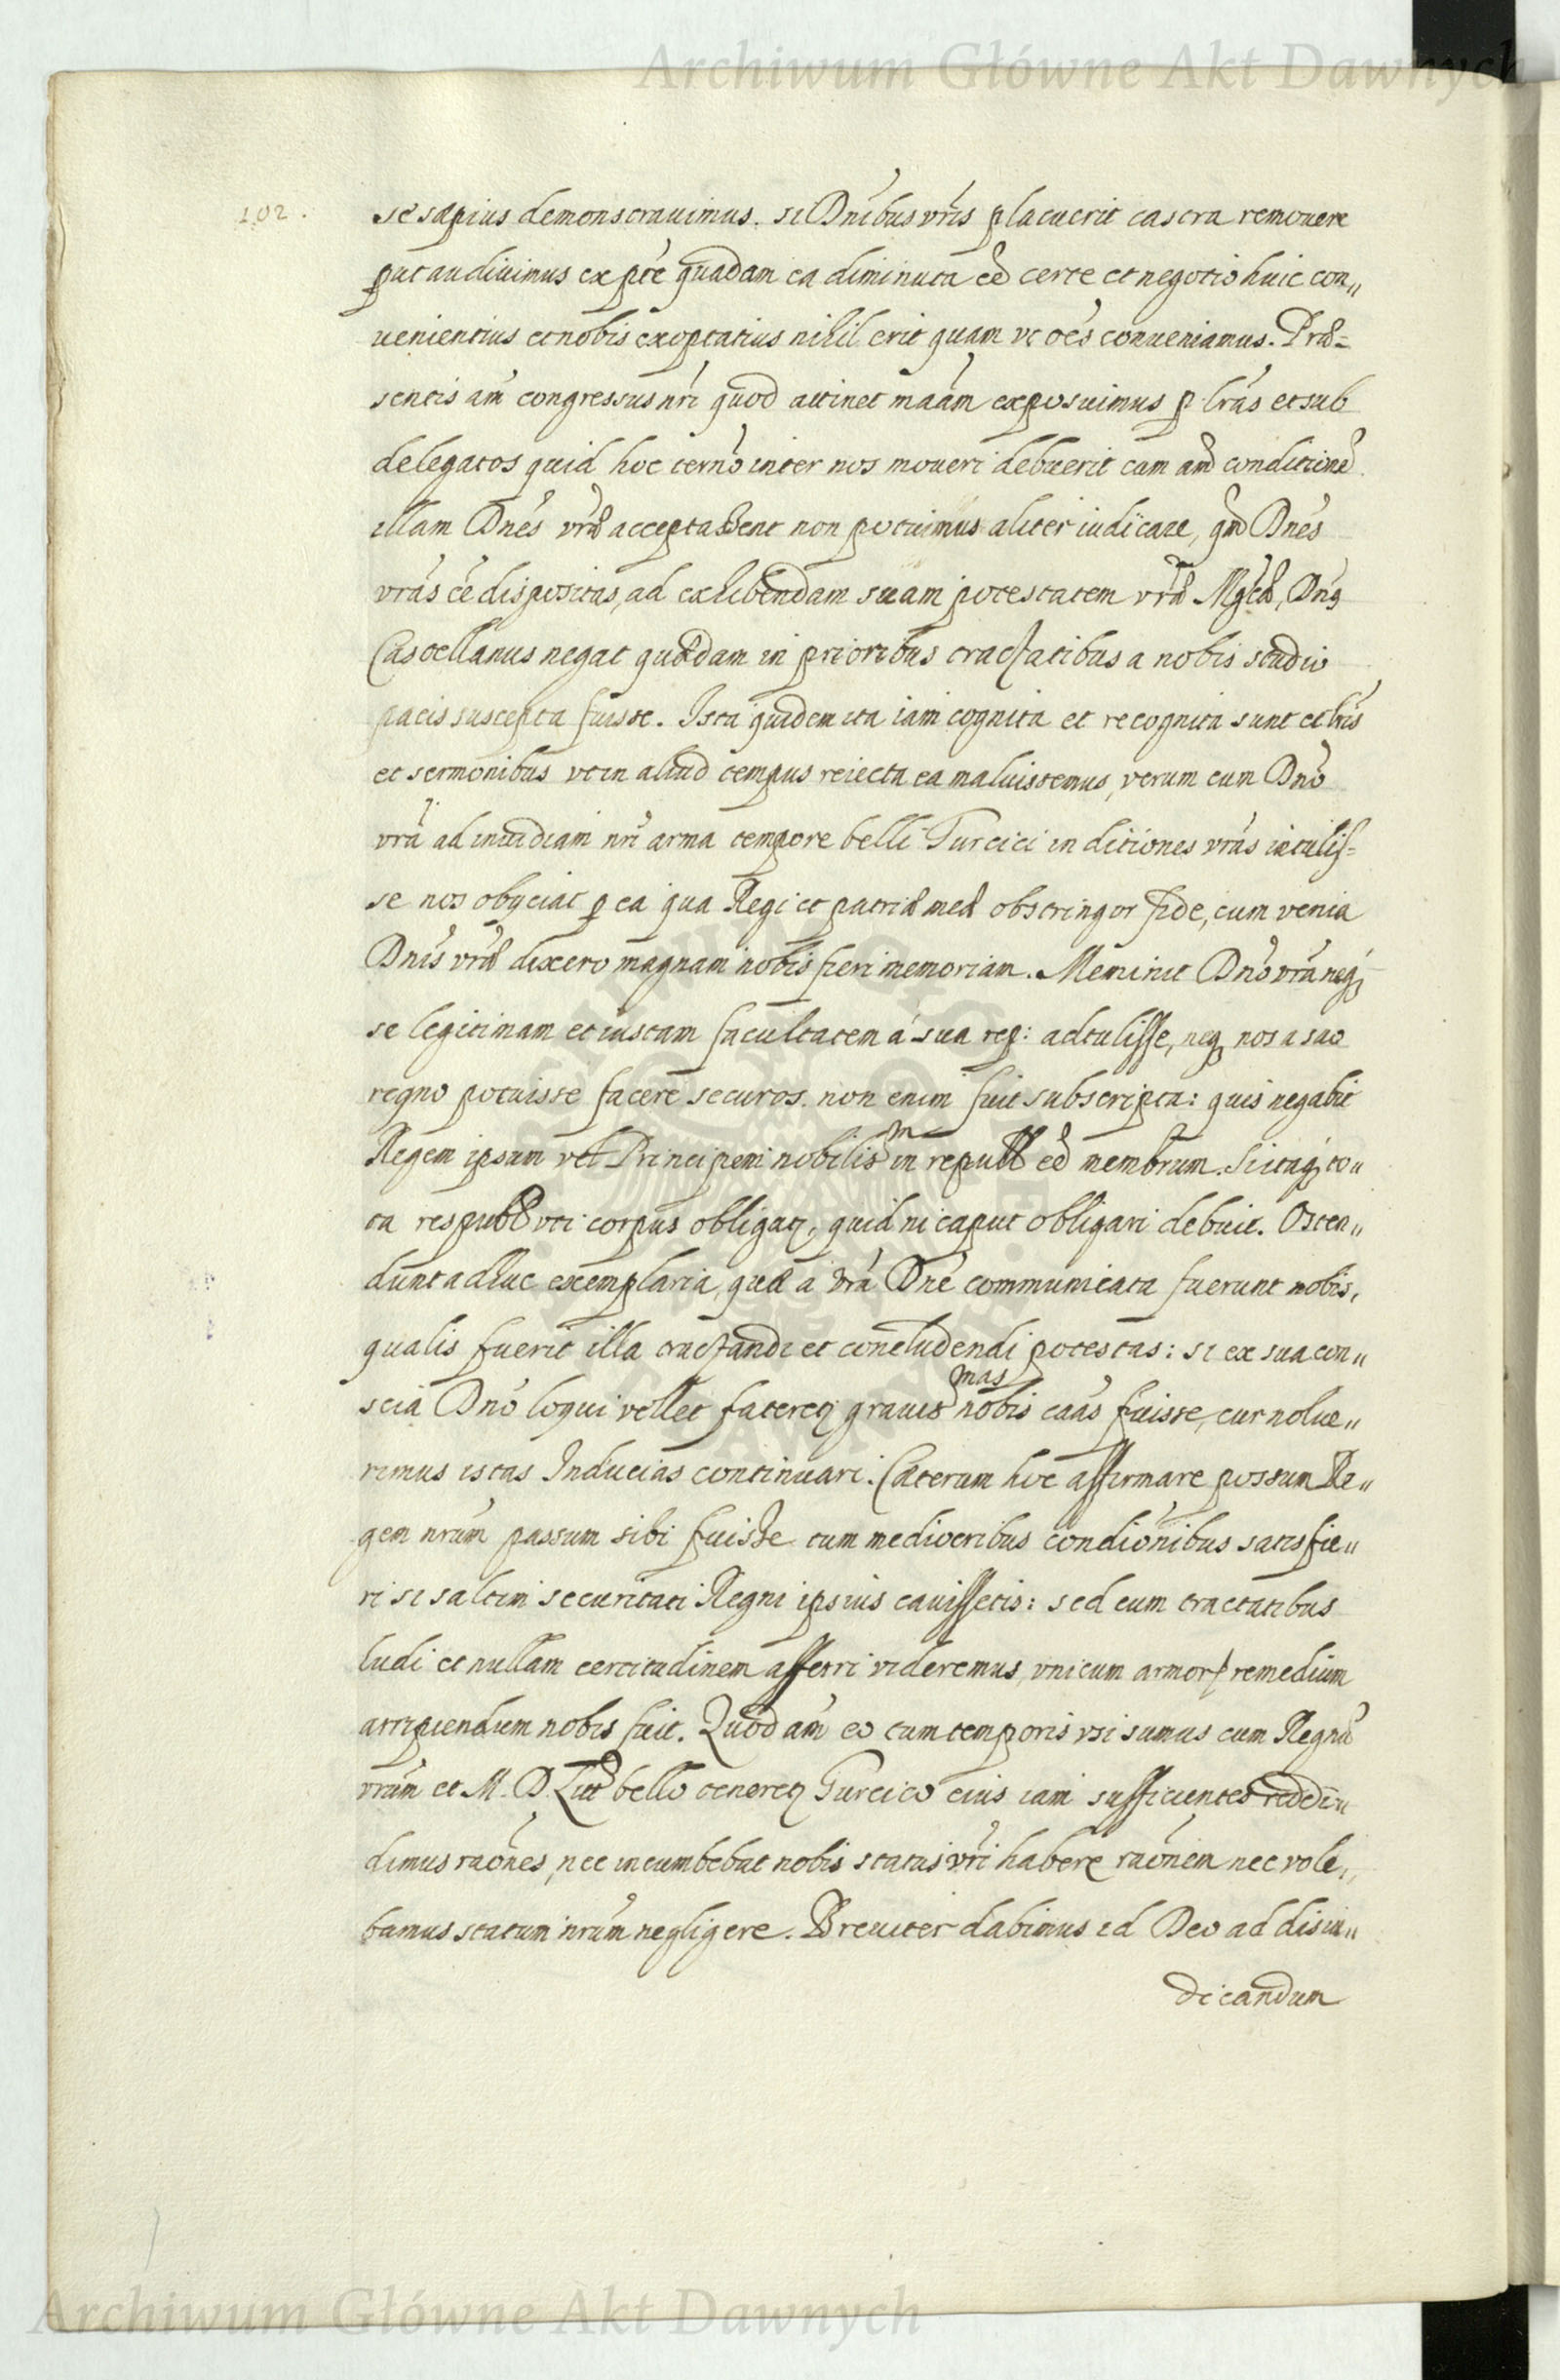 Archiwum Główne Akt Dawnych
102.
se sæpius demonstrauimus. si Dn̄ibus vr̄is placuerit castra remouere
put audiuimus ex pte quadam ea diminuta eē certe et negotio huic con„
uenientius et nobis exoptatius nihil erit quam vt oēs conueniamus. Præ=
sentis aūt congressus nr̄i quod attinet maām exposuimus p lr̄as et sub
delegatos quid hoc termō inter nos moueri debuerit cam aūt conditionē
illam Dn̄es vræ acceptassent non potuimus aliter iudicare, qm̄ Dn̄es
vr̄as eē dispositas, ad exhibendam suam potestatem vræ Mgcæ, Dn̄s
Castellanus negat quædam in prioribus tractatibus a nobis studio
pacis suscepta fuisse. Ista quidem ita iam cognita et recognita sunt et lr̄is
et sermonibus vt in aliud tempus reiecta ea maluissemus, verum cum Dn̄o
vr̄a ad inuidiam nr̄i arma tempore belli Turcici in ditiones vr̄as intulis=
se nos obijciat p ea qua Regi et patriæ meæ obstringor fide, cum venia
Dn̄is vræ dixero magnam nobis fieri memoriam. Meminit Dn̄o vr̄a neq;
se legitimam et iustam facultatem á sua rep: adtulisse, neq; nos a suo
regno potuisse facere securos. non enim fuit subscripta: quis negabit
Regem ipsum vel Principem nobilis m in republ eē membrum. Si itaq; to„
ta respubl vti corpus obligat, quid ni caput obligari debuit. Osten„
dunt adhuc exemplaria, quæ a vr̄a Dn̄e communicata fuerunt nobis,
qualis fuerit illa tractandi et concludendi potestas: si ex sua con„
scia Dn̄o loqui vellet fateretur grauis mas nobis caās fuisse, cur nolue„
rimus istas Inducias continuari. Cæterum hoc affirmare possum Re„
gem nrūm passum sibi fuisse tum mediocribus condiōnibus satisfie„
ri si saltim securitati Regni ipsius cauissetis: sed cum tractatibus
ludi et nullam certitudinem afferri videremus, vnicum armor remedium
arripiendum nobis fuit. Quod aūt eo tum temporis vsi sumus cum Regnū
vrūm et M. D. Lit bello teneretur Turcico eius iam sufficientes reddi„
dimus raōnes, nec incumbebat nobis status vr̄i habere raōnem nec vole„
bamus statum nrūm negligere. Breuiter dabimus id Deo ad disiu„
dicandum
Archiwum Główne Akt Dawnych